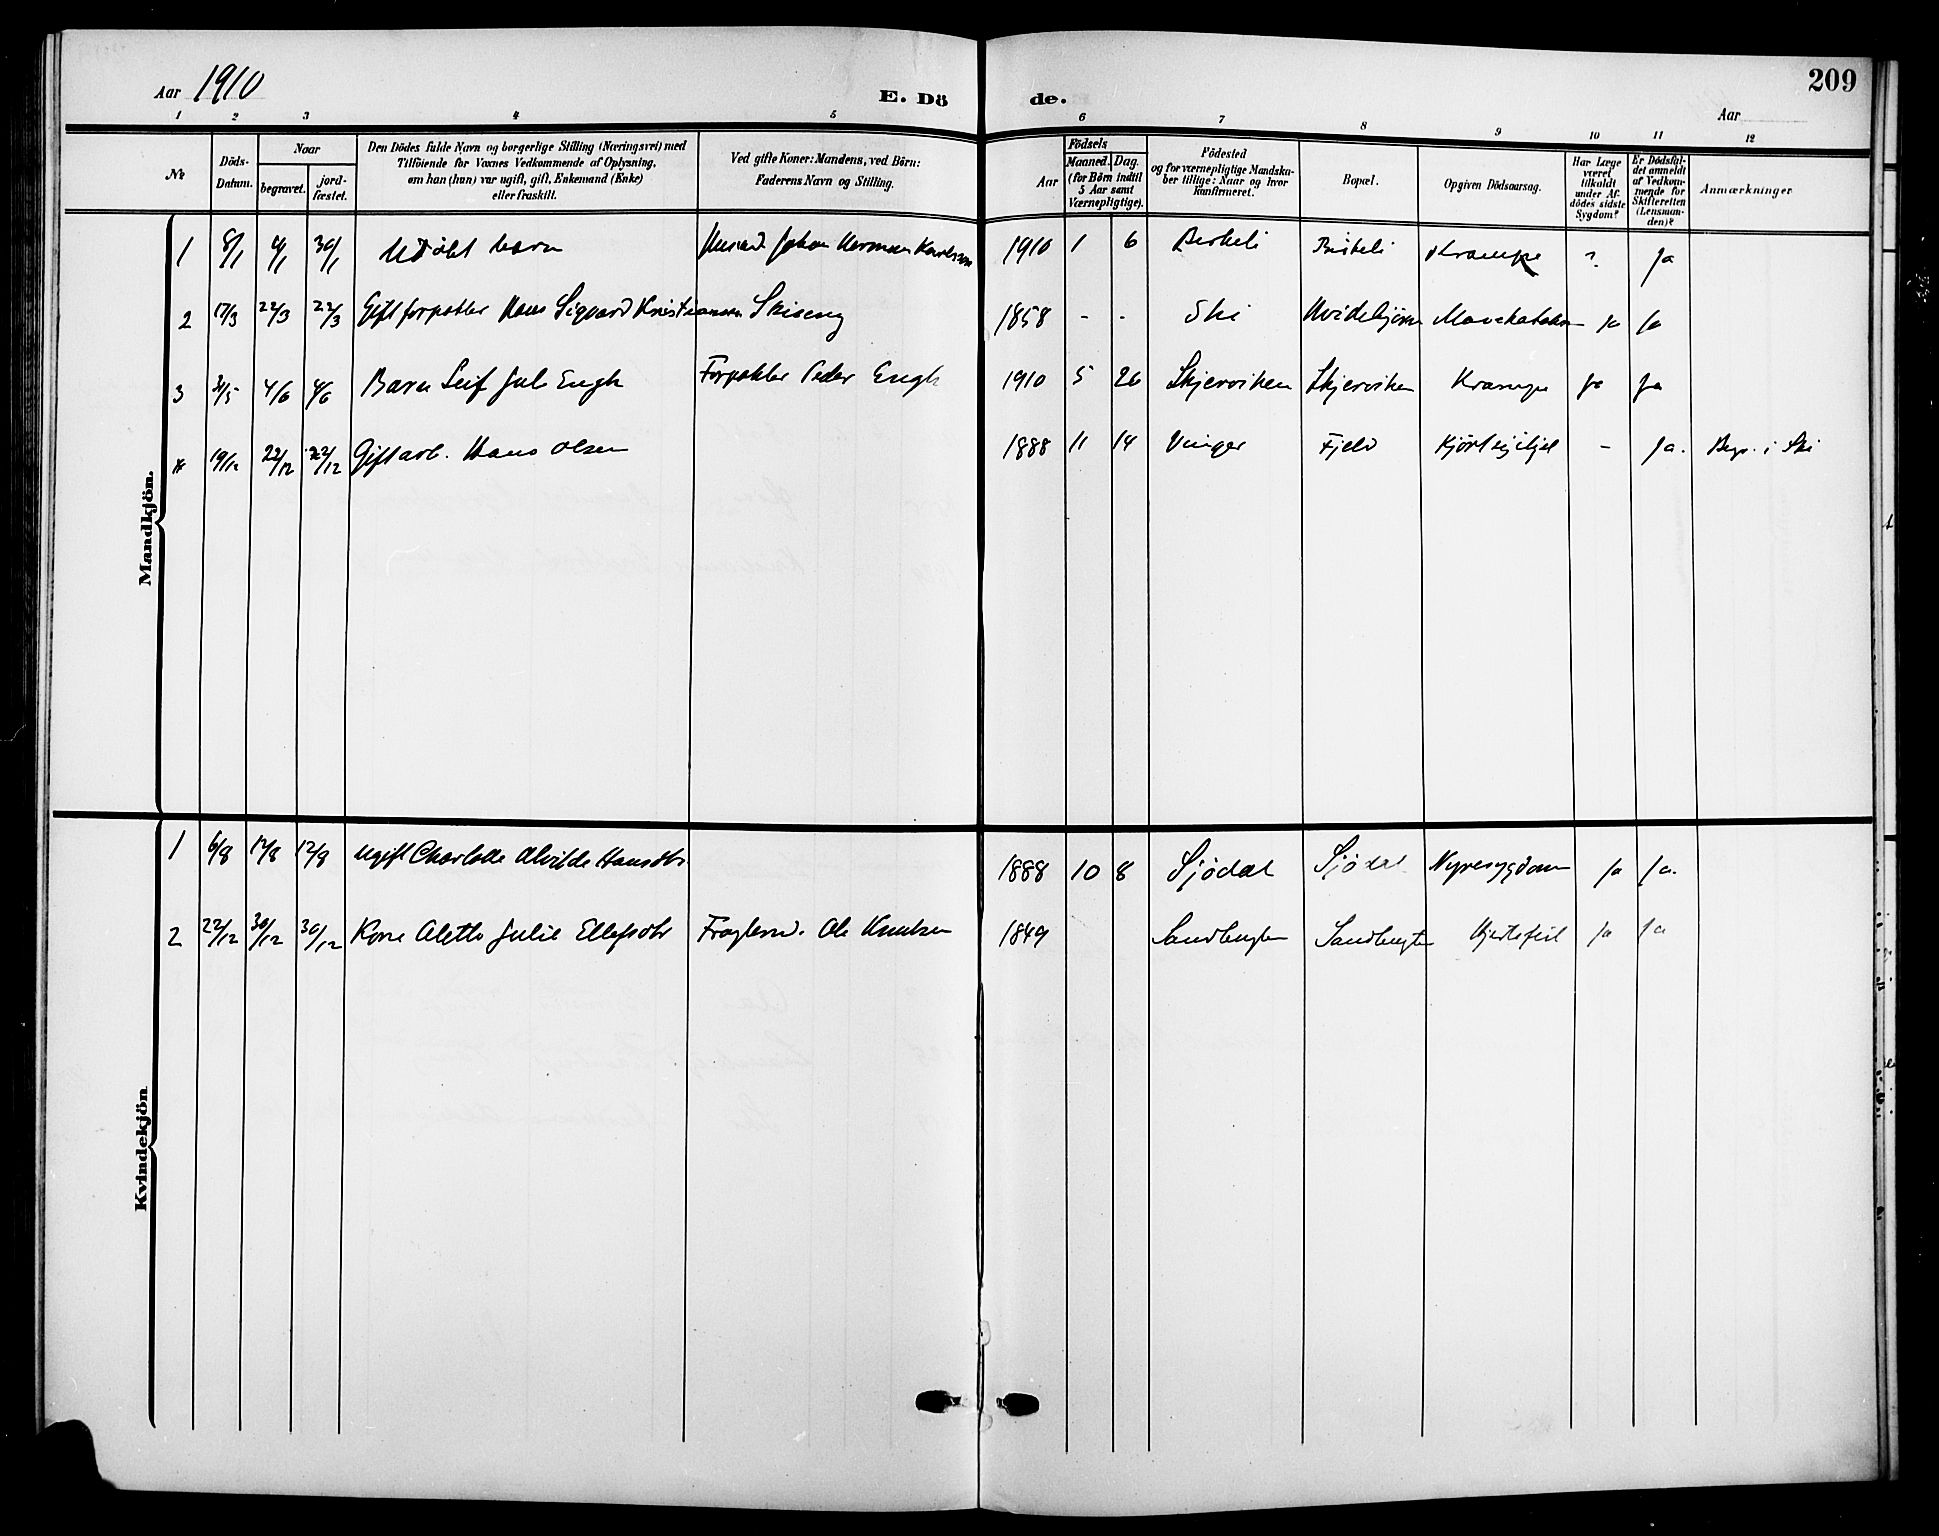 Aar 1910
E. Dö
de.
209
Aar
1 2 3 4 5 6 7 8 9 10 11 12
№
Döds-
Datum.
Naar
begravet.
jord-
fæstet.
Den Dödes fulde Navn og borgerlige Stilling (Næringsvei) med
Tilföiende for Voxnes Vedkommende af Oplysning,
om han (hun) var ugift, gift, Enkemand (Enke)
eller fraskilt.
Ved gifte Koner: Mandens, ved Börn:
Faderens Navn og Stilling.
Födsels
Aar
Maaned. Dag.
(for Börn indtil
5 Aar samt
Værnepligtige).
Födested
og for værnepligtige Mandska-
ber tillige: Naar og hvor
Konfirmeret.
Bopæl.
Opgiven Dödsaarsag.
Har Læge
været
tilkaldt
under Af-
dödes sidste
Sygdom?
Er Dödsfal-
det anmeldt
af Vedkom-
mende for
Skifteretten
(Lensman-
den)?
Anmærkninger
Mandkjön.
1 8/1 9/1 30/1 Udöbt barn Johan Herman Karlsen 1910 1 6 Birkeli Birkeli Krampe ? Ja
2 17/3 22/3 22/3 Gift forpakter Hans Sigvard Kristiansen Skiseng 1858 - - Ski Hvidebjørn Mavekatarr Ja Ja
3 31/5 4/6 4/6 Barn Leif Jul Engh Forpakter Peder Engh 1910 5 26 Skjerviken Skjerviken Krampe Ja Ja
4 19/12 22/12 22/12 Gift arb. Hans Olsen 1888 11 14 Vinger Fjeld Kjört ihjel - Ja. Begr. i Ski
Kvindekjön
1 6/8 12/8 12/8 Ugift Charlotte Alvilde Hansdtr 1888 10 8 Sjödal Sjödal Nyresygdom Ja Ja.
2 22/12 30/12 30/12 Kone Alette Julie Ellefsdtr Ole Knutsen 1849 Sandbugten Sandbugten Hjertefeil Ja Ja